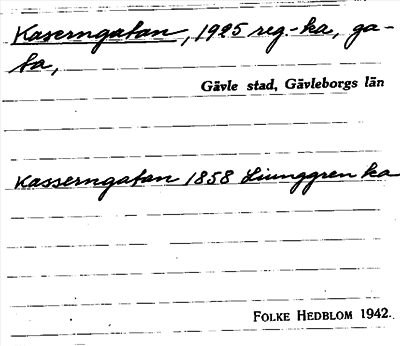 Kaserngatan, 1925 reg-ka, ga-
ta,
Gävle stad, Gävleborgs län
Kasserngatan 1858 Ljunggren ka
FOLKE HEDBLOM 1942.